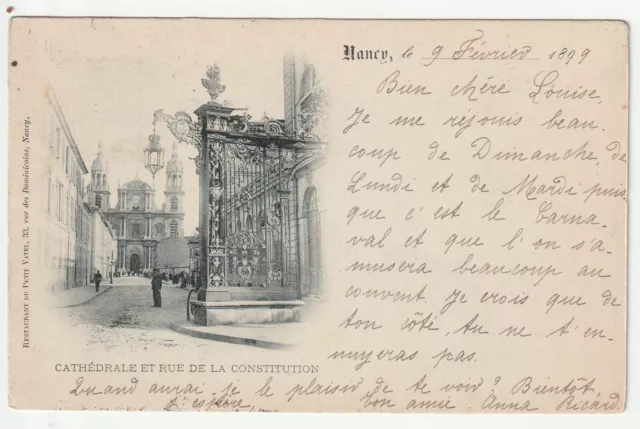 Nancy, le 9 Février 1899
Bien chère Louise,
Je me réjouis beau-
coup de Dimanche, de
Lundi et de Mardi puis-
que c'est le Carna-
val et que l'on s'a-
musera beaucoup au
couvent. Je crois que de
ton côté, tu ne t'en-
nuyeras pas.
RESTAURANT DU PETIT VATEL, 23, rue des Dominicains, Nancy.
CATHÉDRALE ET RUE DE LA CONSTITUTION
Quand aurai-je le plaisir de te voir? Bientôt,
j'espère. Ton amie, Anna Ricard.